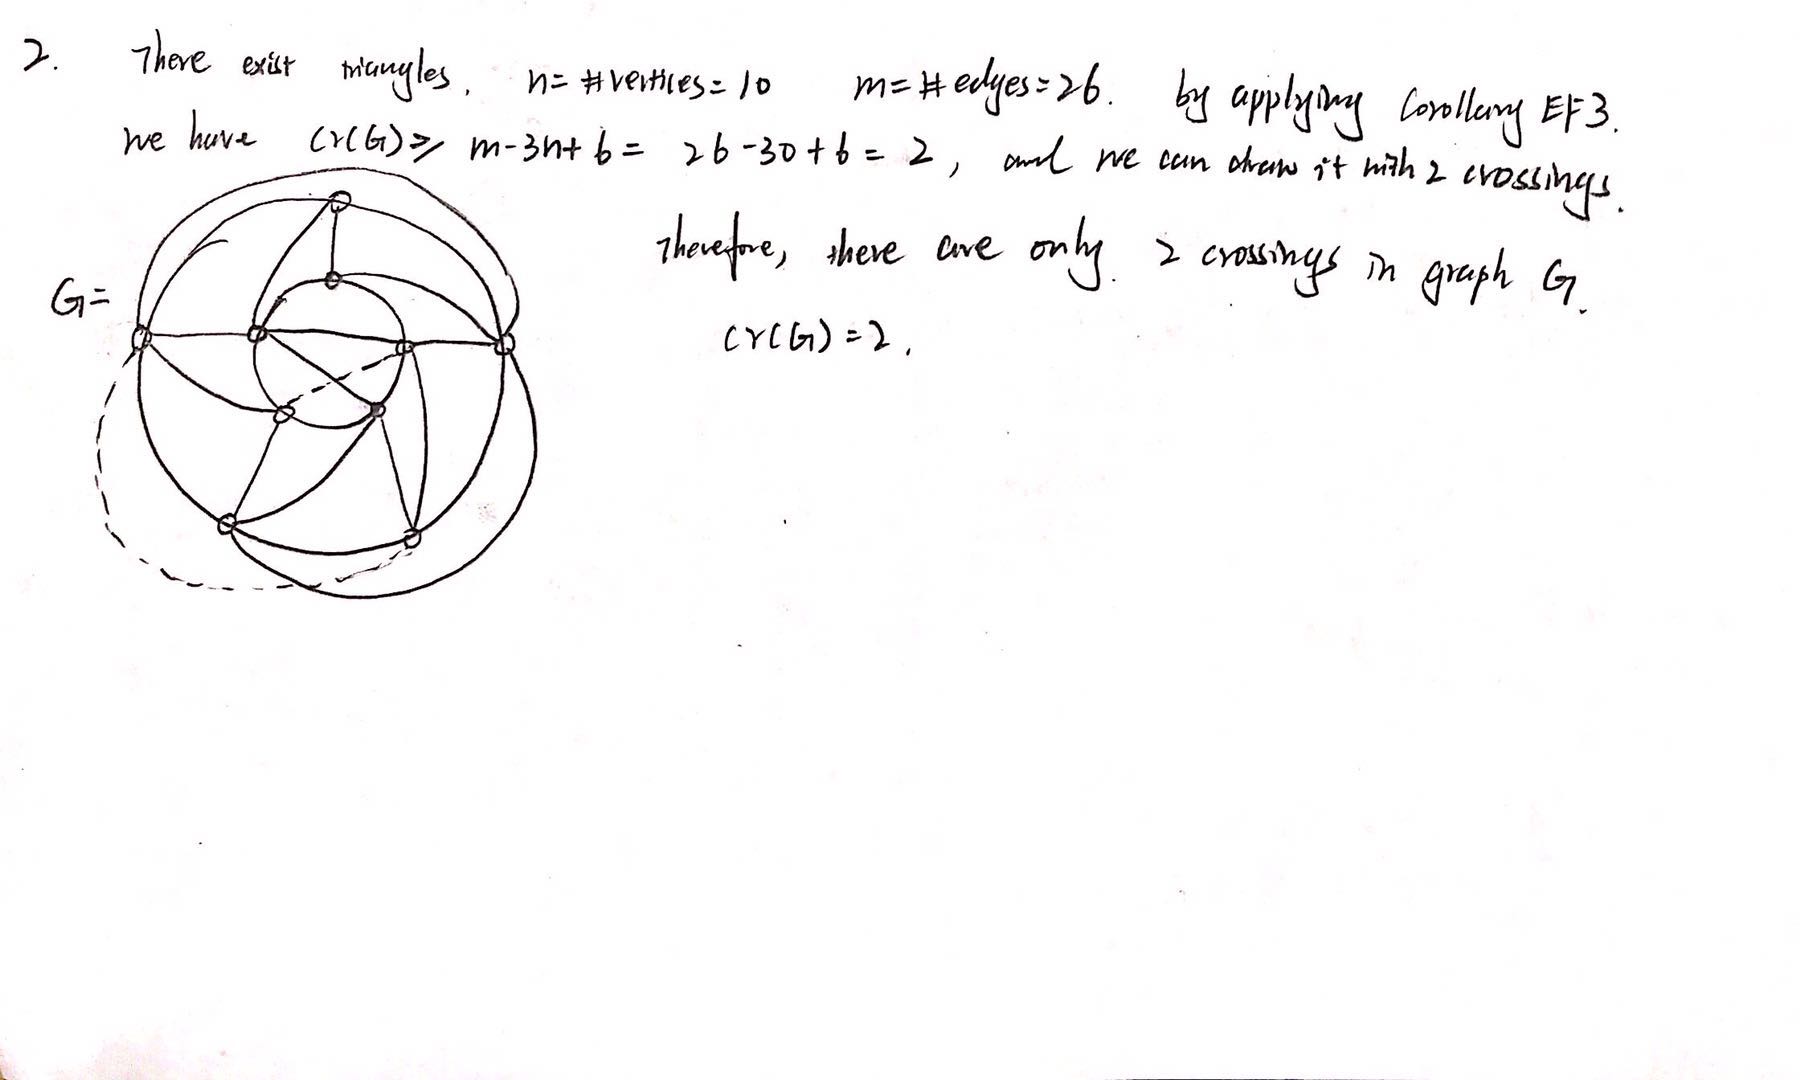 2. There exist triangles. n = # vertices = 10 m = # edges = 26. by applying Corollary EF3.
we have cr(G) ⩾ m-3n+6 = 26-30+6 = 2, and we can draw it with 2 crossings.
Therefore, there are only 2 crossings in graph G.
G=
cr(G) = 2.